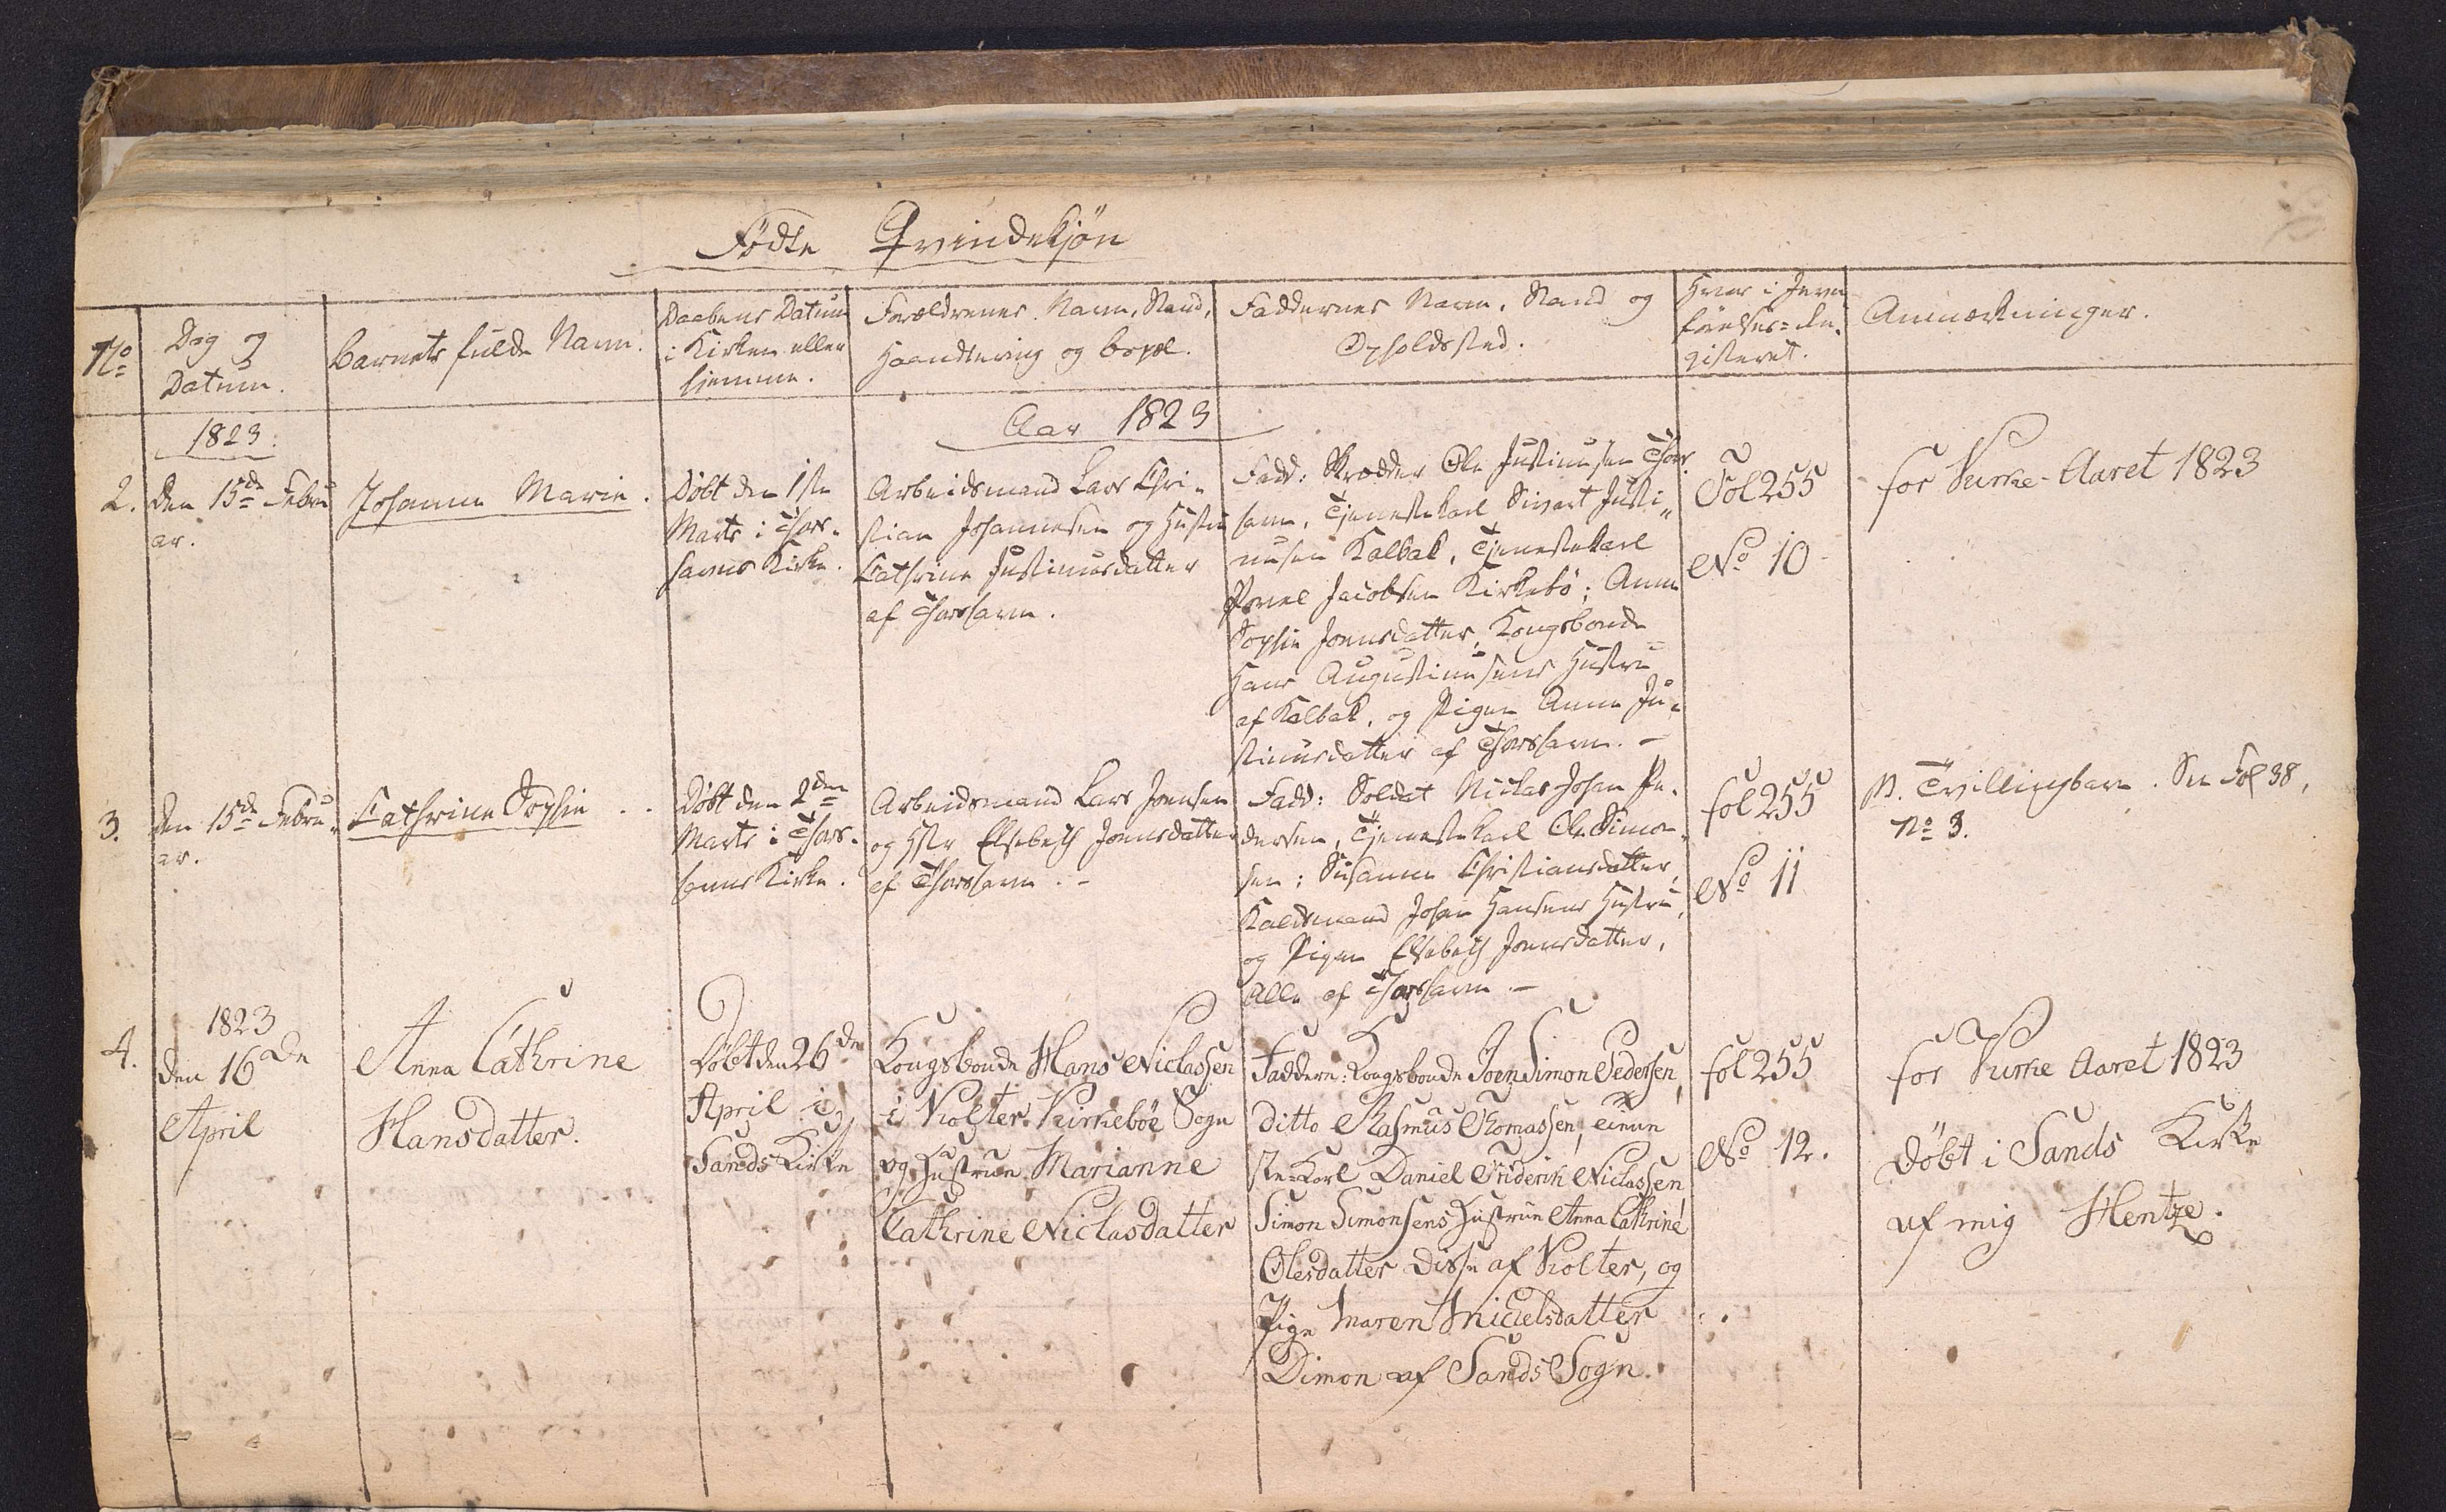 Födte Qvindekjön
No
Dag og
Datum.
Barnets fulde Navn.
Daabens Datum
i Kirken eller
hjemme.
Forældrenes Navn, Stand,
Haandtering og bopæl.
Faddernes Navn, Stand og
Opholdssted.
Hvor i Jevn
förelses-Re-
gisteret.
Anmærkninger.
1823.
Aar 1823
2.
Den 15de Febru
ar.
Johanne Marie.
Döbt den 1ste
Marts i Thors-
havns Kirke.
Arbeidsmand Lars Chri-
stian Johannesen og Hustru
Cathrine Justinusdatter
af Thorshavn.
Fadd: Skrædder Ole Justinussen Thors-
havn, Tjenestekarl Sivert Justi-
nusen Kalbak, Tjenestekarl
Povel Jacobsen Kirkebö; Anne
Sophie Joensdatter, Kongsbonde
Hans Augustinusens Hustru
af Kalbak, og Pigen Anne Ju-
stinusdatter af Thorshavn. -
Fol 255
No 10
for Kirke-Aaret 1823
3.
Den 15de Febru-
ar.
Cathrine Sophie
Döbt den 2den
Marts i Thors-
havns Kirke.
Arbeidsmand Lars Joensen
og Hstr Elsebeth Joensdatter
af Thorshavn. -
Fadd: Soldat Niclas Johan Pe-
dersen, Tjenestekarl Ole Simon-
sen; Susanne Christiansdatter,
Kaldsmand Johan Hansens Hustru,
og Pigen Elsebeth Joensdatter,
Alle af Thorshavn. -
fol 255
No 11
Tvillingbarn. See Fol 38,
No 3.
4.
1823
den 16de
April
Anna Cathrine
Hansdatter.
Döbt den 26de
April i
Sands Kirke
Kongsbonde Hans Niclassen
i Kolter Kirkeböe Sogn
og Hustrue Marianne
Cathrine Niclasdatter
Faddere: Kongsbonde Joen Simon Pedersen,
ditto Rasmus Thomassen, tiene
ste-Karl Daniel Friderik Niclassen
Simon Simonsens Hustrue Anna Cathrine
Olesdatter disse af Kolter, og
Pige Maren Michelsdatter
Dimon af Sands Sogn.
fol 255
No 12.
for Kirke Aaret 1823
döbt i Sands Kirke
af mig Hentze.